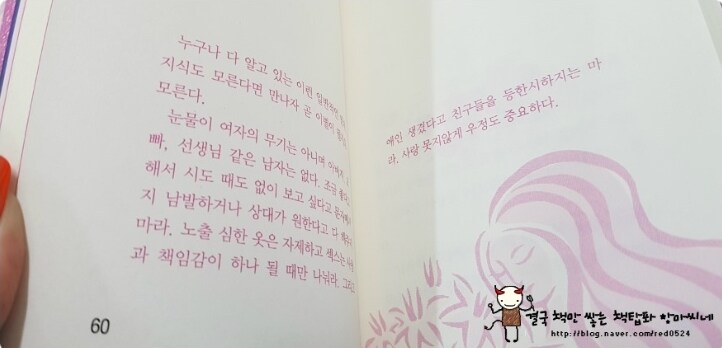 누구나 다 알고 있는 이런 일반적인
지식도 모른다면 만나자 곧 이별이
모른다.
눈물이 여자의 무기는 아니며 아버지,
빠, 선생님 같은 남자는 없다. 조금
해서 시도 때도 없이 보고 싶다고
지 남발하거나 상대가 원한다고 다
마라. 노출 심한 옷은 자제하고 섹스는
과 책임감이 하나 될 때만 나눠라. 그리고
60
애인 생겼다고 친구들을 등한시하지는 마
라. 사랑 못지않게 우정도 중요하다.
결국 책만 쌓는 책탑파 한마씨네
http://blog.naver.com/red0524